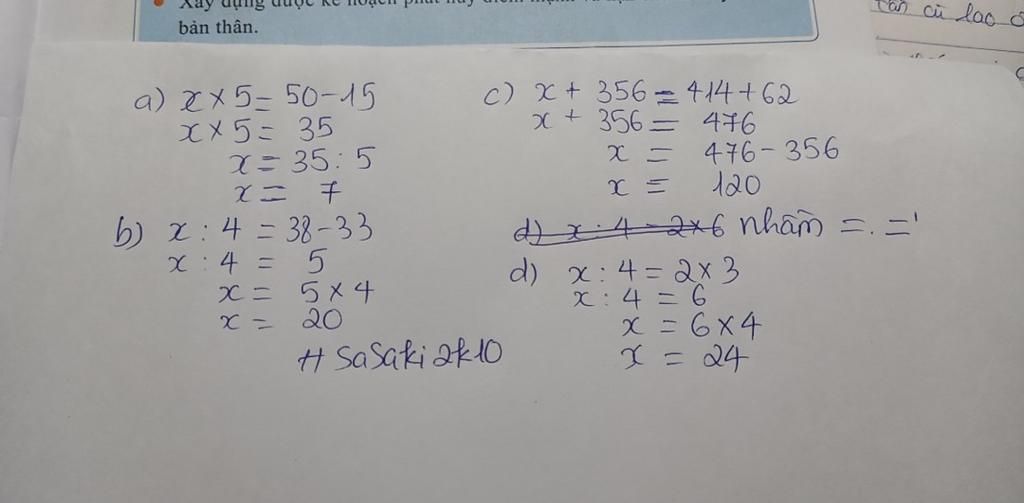 bản thân.
a) x × 5 = 50 - 15
x × 5 = 35
x = 35 : 5
x = 7
b) x : 4 = 38 - 33
x : 4 = 5
x = 5 × 4
x = 20
# SaSaki2k10
c) x + 356 = 414 + 62
x + 356 = 476
x = 476 - 356
x = 120
d) x : 4 = 2 × 6 nhầm =. ='
d) x : 4 = 2 × 3
x : 4 = 6
x = 6 × 4
x = 24